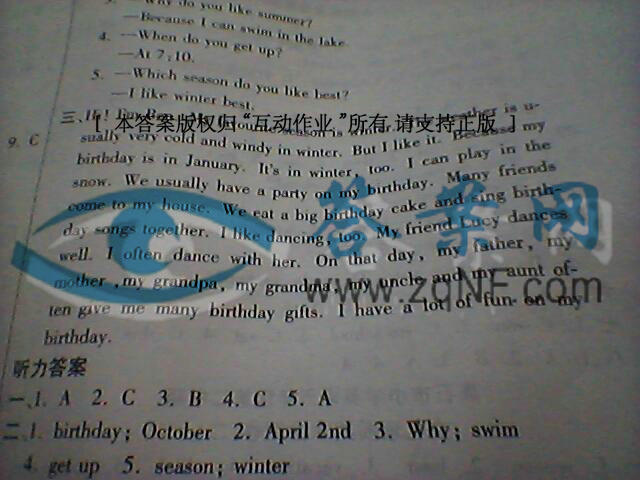 3. —Why do you like summer?
—Because I can swim in the lake.
4. —When do you get up?
—At 7:10.
5. —Which season do you like best?
—I like winter best.
三、Hi! season is is u-
[ 本答案版权归“互动作业”所有,请支持正版 ]
9. C
sually very cold and windy in winter. But I like it. Because my
birthday is in January. It's in winter, too. I can play in the
snow. We usually have a party on my birthday. Many friends
come to my house. We eat a big birthday cake and sing birth-
day songs together. I like dancing, too. My friend Lucy dances
well. I often dance with her. On that day, my father, my
mother ,my grandpa, my grandma, my uncle and my aunt of-
ten give me many birthday gifts. I have a lot of fun on my
birthday.
答案网
www.zqNF.com
听力答案
一、1. A 2. C 3. B 4. C 5. A
二、1. birthday; October 2. April 2nd 3. Why; swim
4. get up 5. season; winter